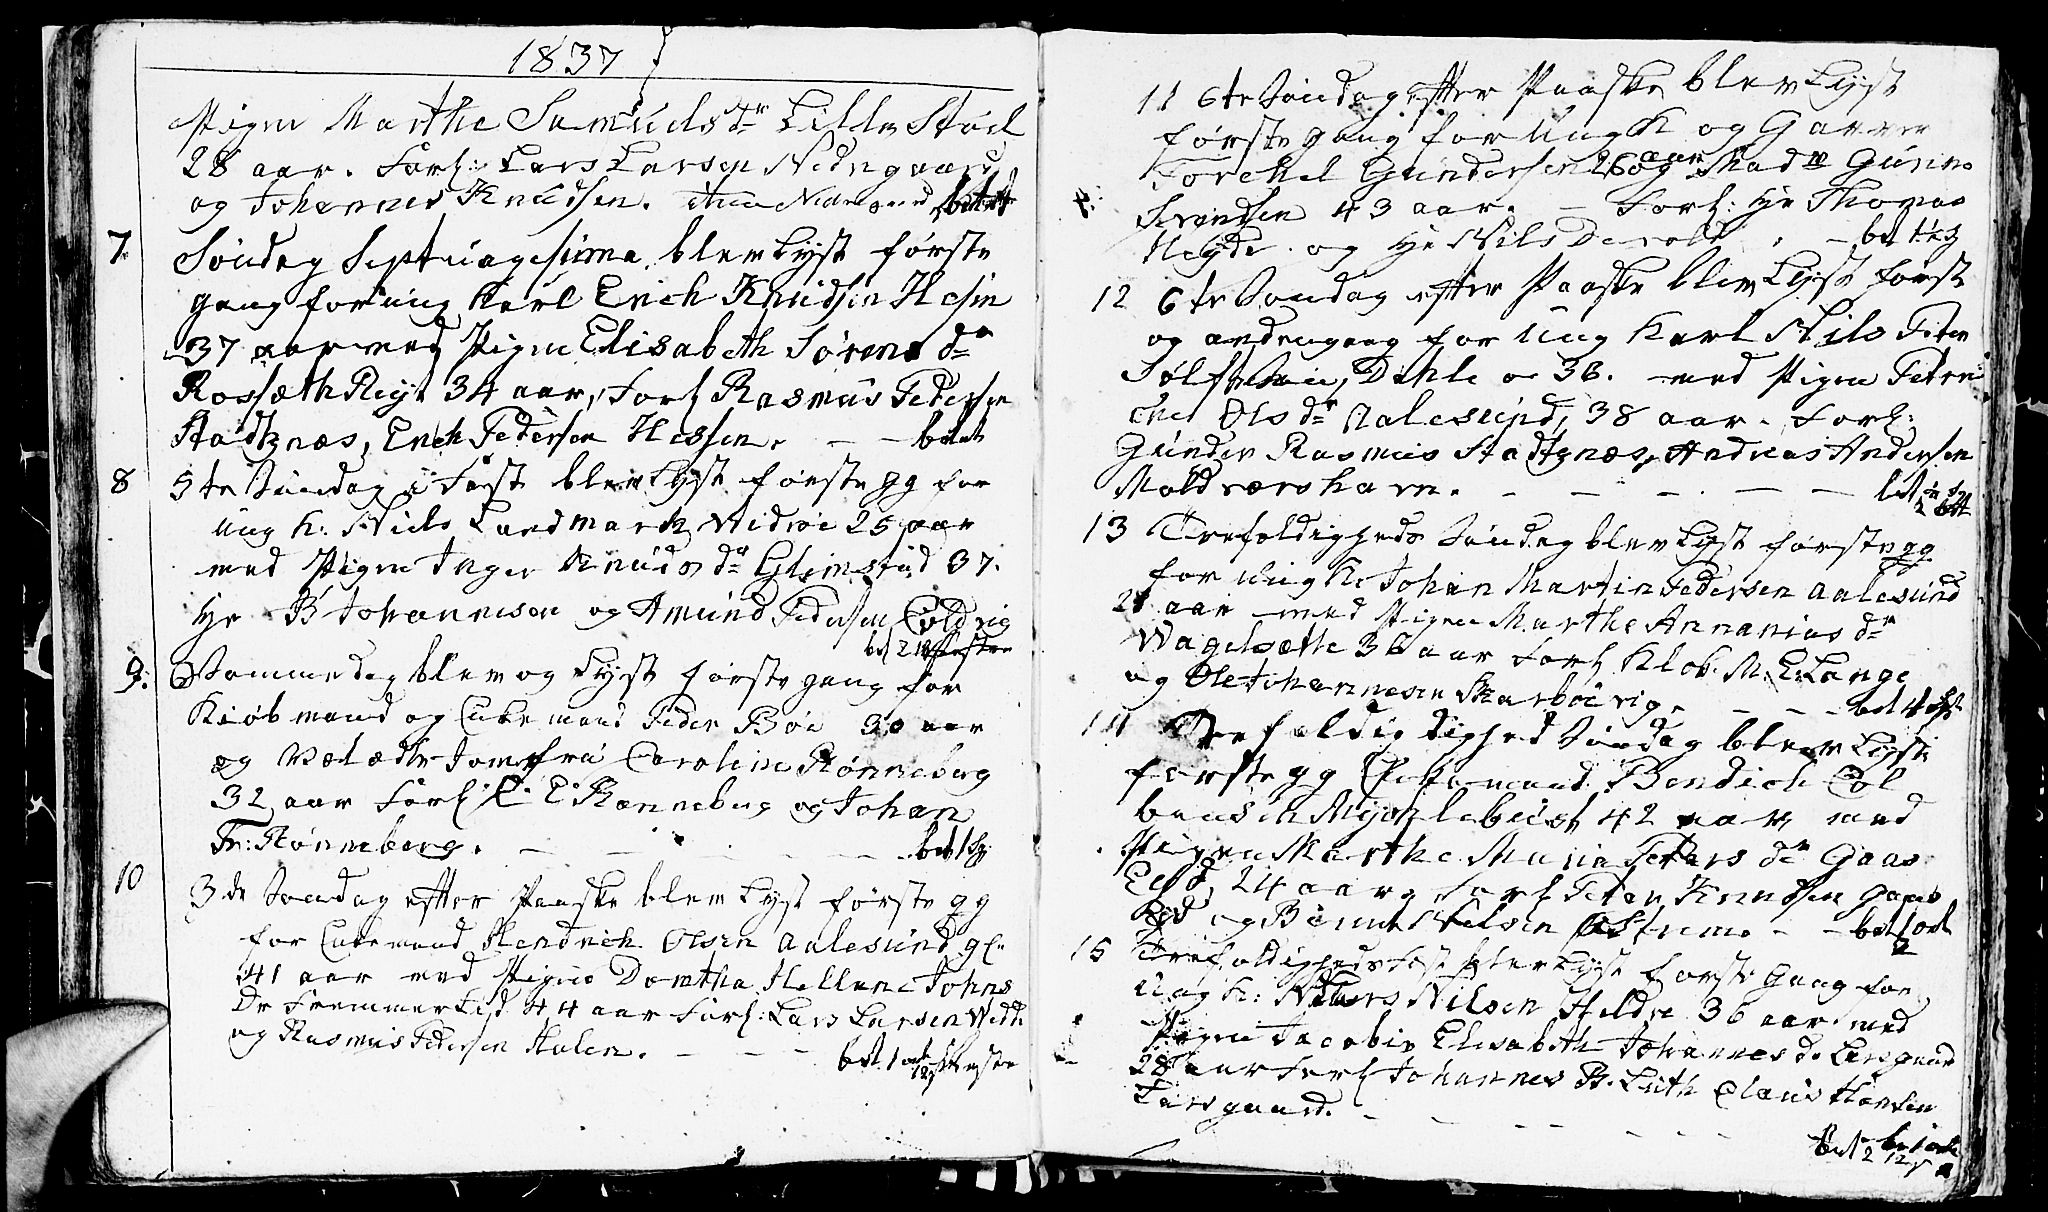 1837
Pigen Marthe Samuels dr Lille Stöel
28 aar. Forl: Lars Larsen Nedregaard
og Johannes Knudsen. betalt
7. Söndag Septuagesima blev lyst förste
gang for ung Karl Erich Knudsen Hesen
37 aar med Pigen Elisabeth Sörens dr
Rossæth 34 aar, Forl Rasmus Pedersen
Stadtznæs, Erich Pedersen Hessen. - - betalt
8 5te Söndag i Fast blev lyst förste gg for
ung K: Niels Landmark Widröe 25 aar
med Pigen Inger Knuds dr Glimstad 37.
Hr B Johannesen og Amund Pedersen Coldvig
9. Samme dag blev og lyst förste gang for
Kiöbmand og Enkemand Peder Böe 30 aar
og Velædle Jomfru Caroline Rönneberg
32 aar Forl C: E: Rønneberg og Johan
Fr: Rönneberg. - - - - - - bet 1 Sp
10 3de Söndag efter Paaske blev lyst förste gg
for Enkemand Hendrich Olsen Aalesund gl.
41 aar med Pigen Dorthe Hellene Johns
Dr Fremmerlid 44 aar Forl: Lars Larsen
og Rasmus Pedersen Holen. - - - bet. 1 ort
11 6te Söndag efter Paaske blev lyst
förste gang for Ung K og Garver
Torchel Gundersen 26 aar og Mad Gurine
Svendsen 43 aar. - Forl: Hr Thomas
og Hr Nils Devold. -
12 6te Söndag efter Paaske blev lyst först
og anden gang for Ung Karl Nils Peder
Dahle 36. med Pigen Petri-
che Ols dr Aalesund, 38 aar. Forl:
Gunder Rasmus Stadtznæs, Andreas Andersen
Moldværshavn. - - - - -
13 Trefoldigheds Söndag blev lyst förste gg
for ung K: Johan Martin Pedersen Aalesund
aar med Pigen Marthe Annanias dr
Wagelsætte 36 aar Forl Klok: M. E. Lange
og Ole Johannesen Skarböevig. - - -
14 Trefoldigdighed Söndag blev lyst
förste gg Enkemand Bendich Col
bensen Myklebust 42 aar med
Pigen Marthe Marie Peders dr Gaas
Eid, 24 aar, Forl Peder Knudsen Gaas
Eid og Nilsen - - bet 1 ort
15 Trefoldigheds Fest blev lyst förste gang for
Ung K: Nilsen Heldre 36 aar med
Pigen Jacobie Elisabeth Johannes dr Larsgaard
28 aar Forl Johannes B. Luth Claus Hansen
Larsgaard. - - - - - -